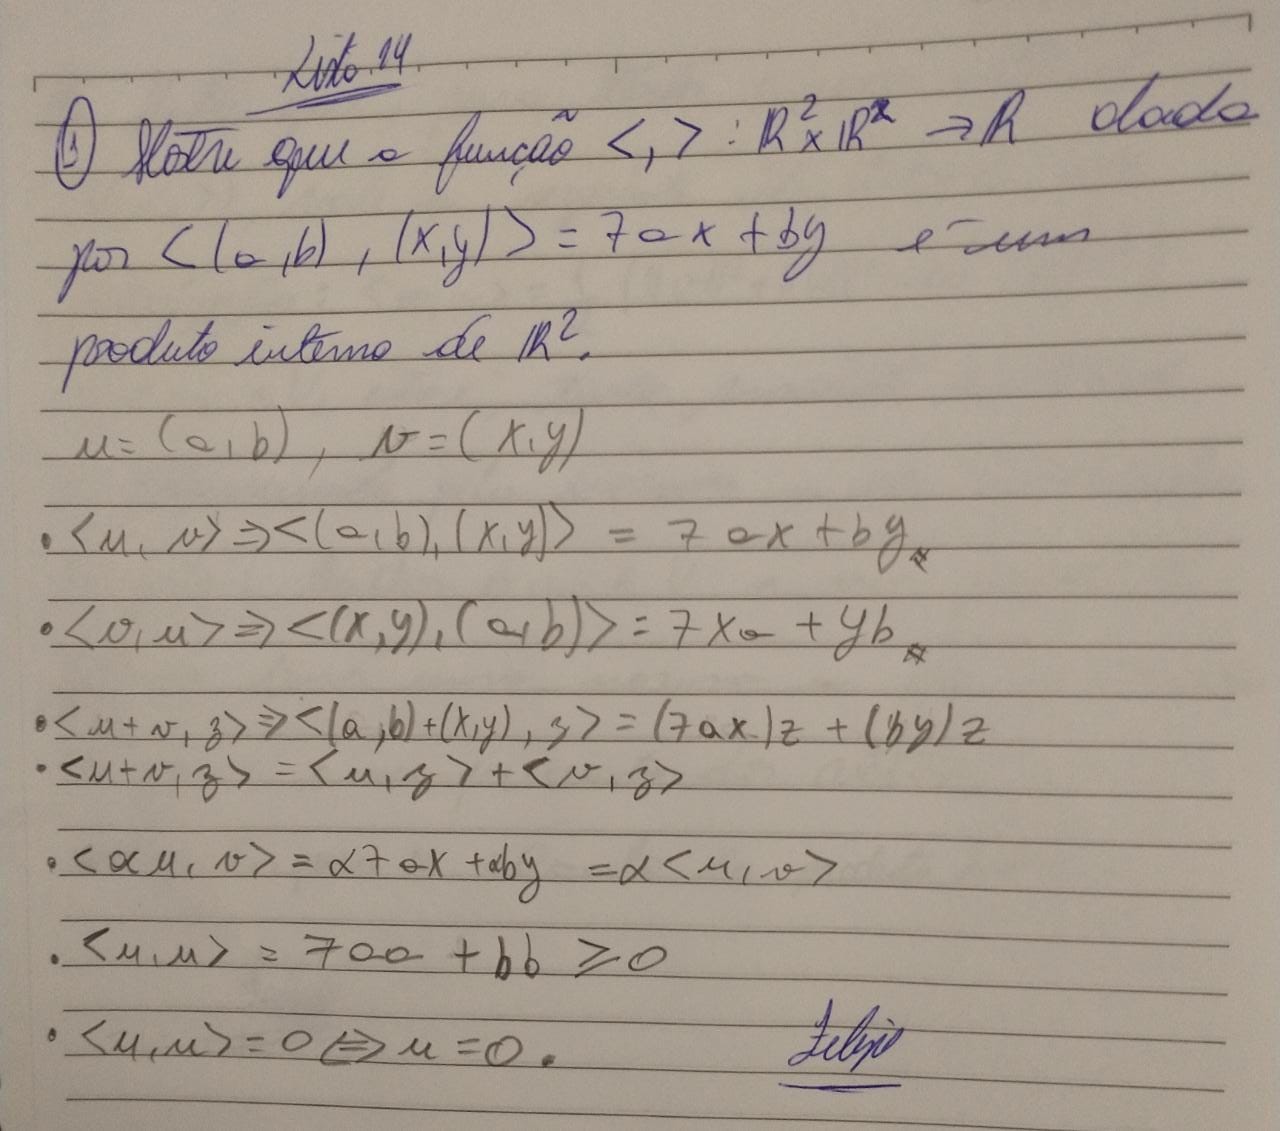 Lista 14
① Mostre que a função <,> : ℝ² x ℝ² → ℝ dada
por <(a,b), (x,y)> = 7ax + by é um
produto interno de ℝ².
u = (a,b), v = (x,y)
• <u, v> ⇒ <(a,b), (x,y)> = 7ax + by *
• <v,u> ⇒ <(x,y), (a,b)> = 7xa + yb *
• <u+v, z> ⇒ <(a,b)+(x,y), z> = (7ax)z + (by)z
• <u+v, z> = <u, z> + <v, z>
• <αu, v> = α7ax + αby = α<u, v>
• <u,u> = 7aa + bb ≥ 0
• <u,u> = 0 ⇔ u = 0.
Felipe